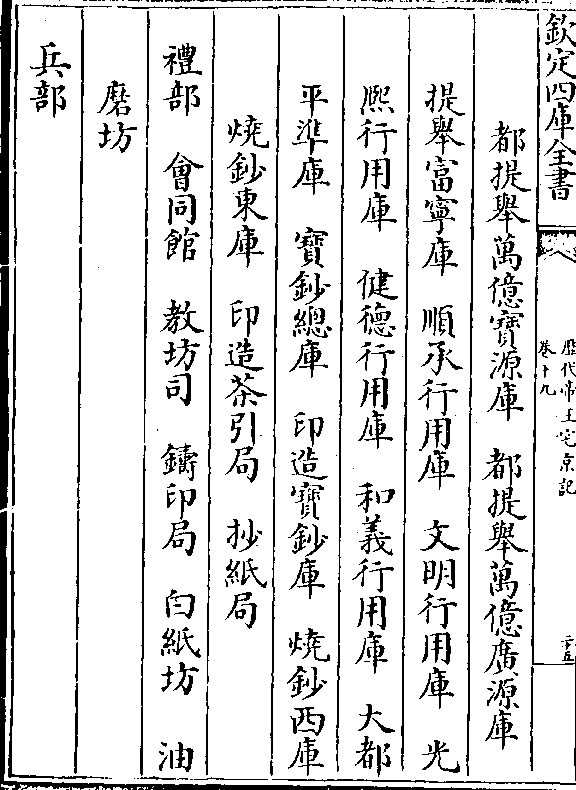 欽定四庫全書
歴代帝王宅京記
卷十九
二十五
都提舉萬億寶源庫　都提舉萬億廣源庫
提舉富寧庫　順承行用庫　文明行用庫　光
熈行用庫　健德行用庫　和義行用庫　大都
平準庫　寶鈔總庫　印造寶鈔庫　燒鈔西庫
燒鈔東庫　印造茶引局　抄紙局
禮部　會同館　教坊司　鑄印局　白紙坊　油
磨坊
兵部